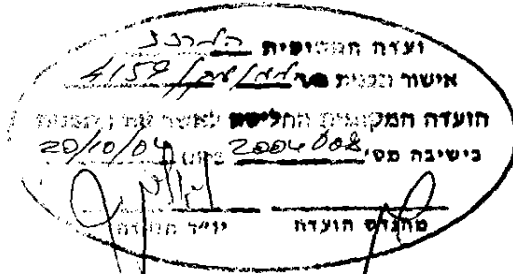 ועדה המקומית המרכז
אישור תכנית מס' 4159
הועדה המקומית החליטה לאשר את התכנית
בישיבה מס' 2004008 ביום 20/10/04
יו"ר הועדה מהנדס הועדה